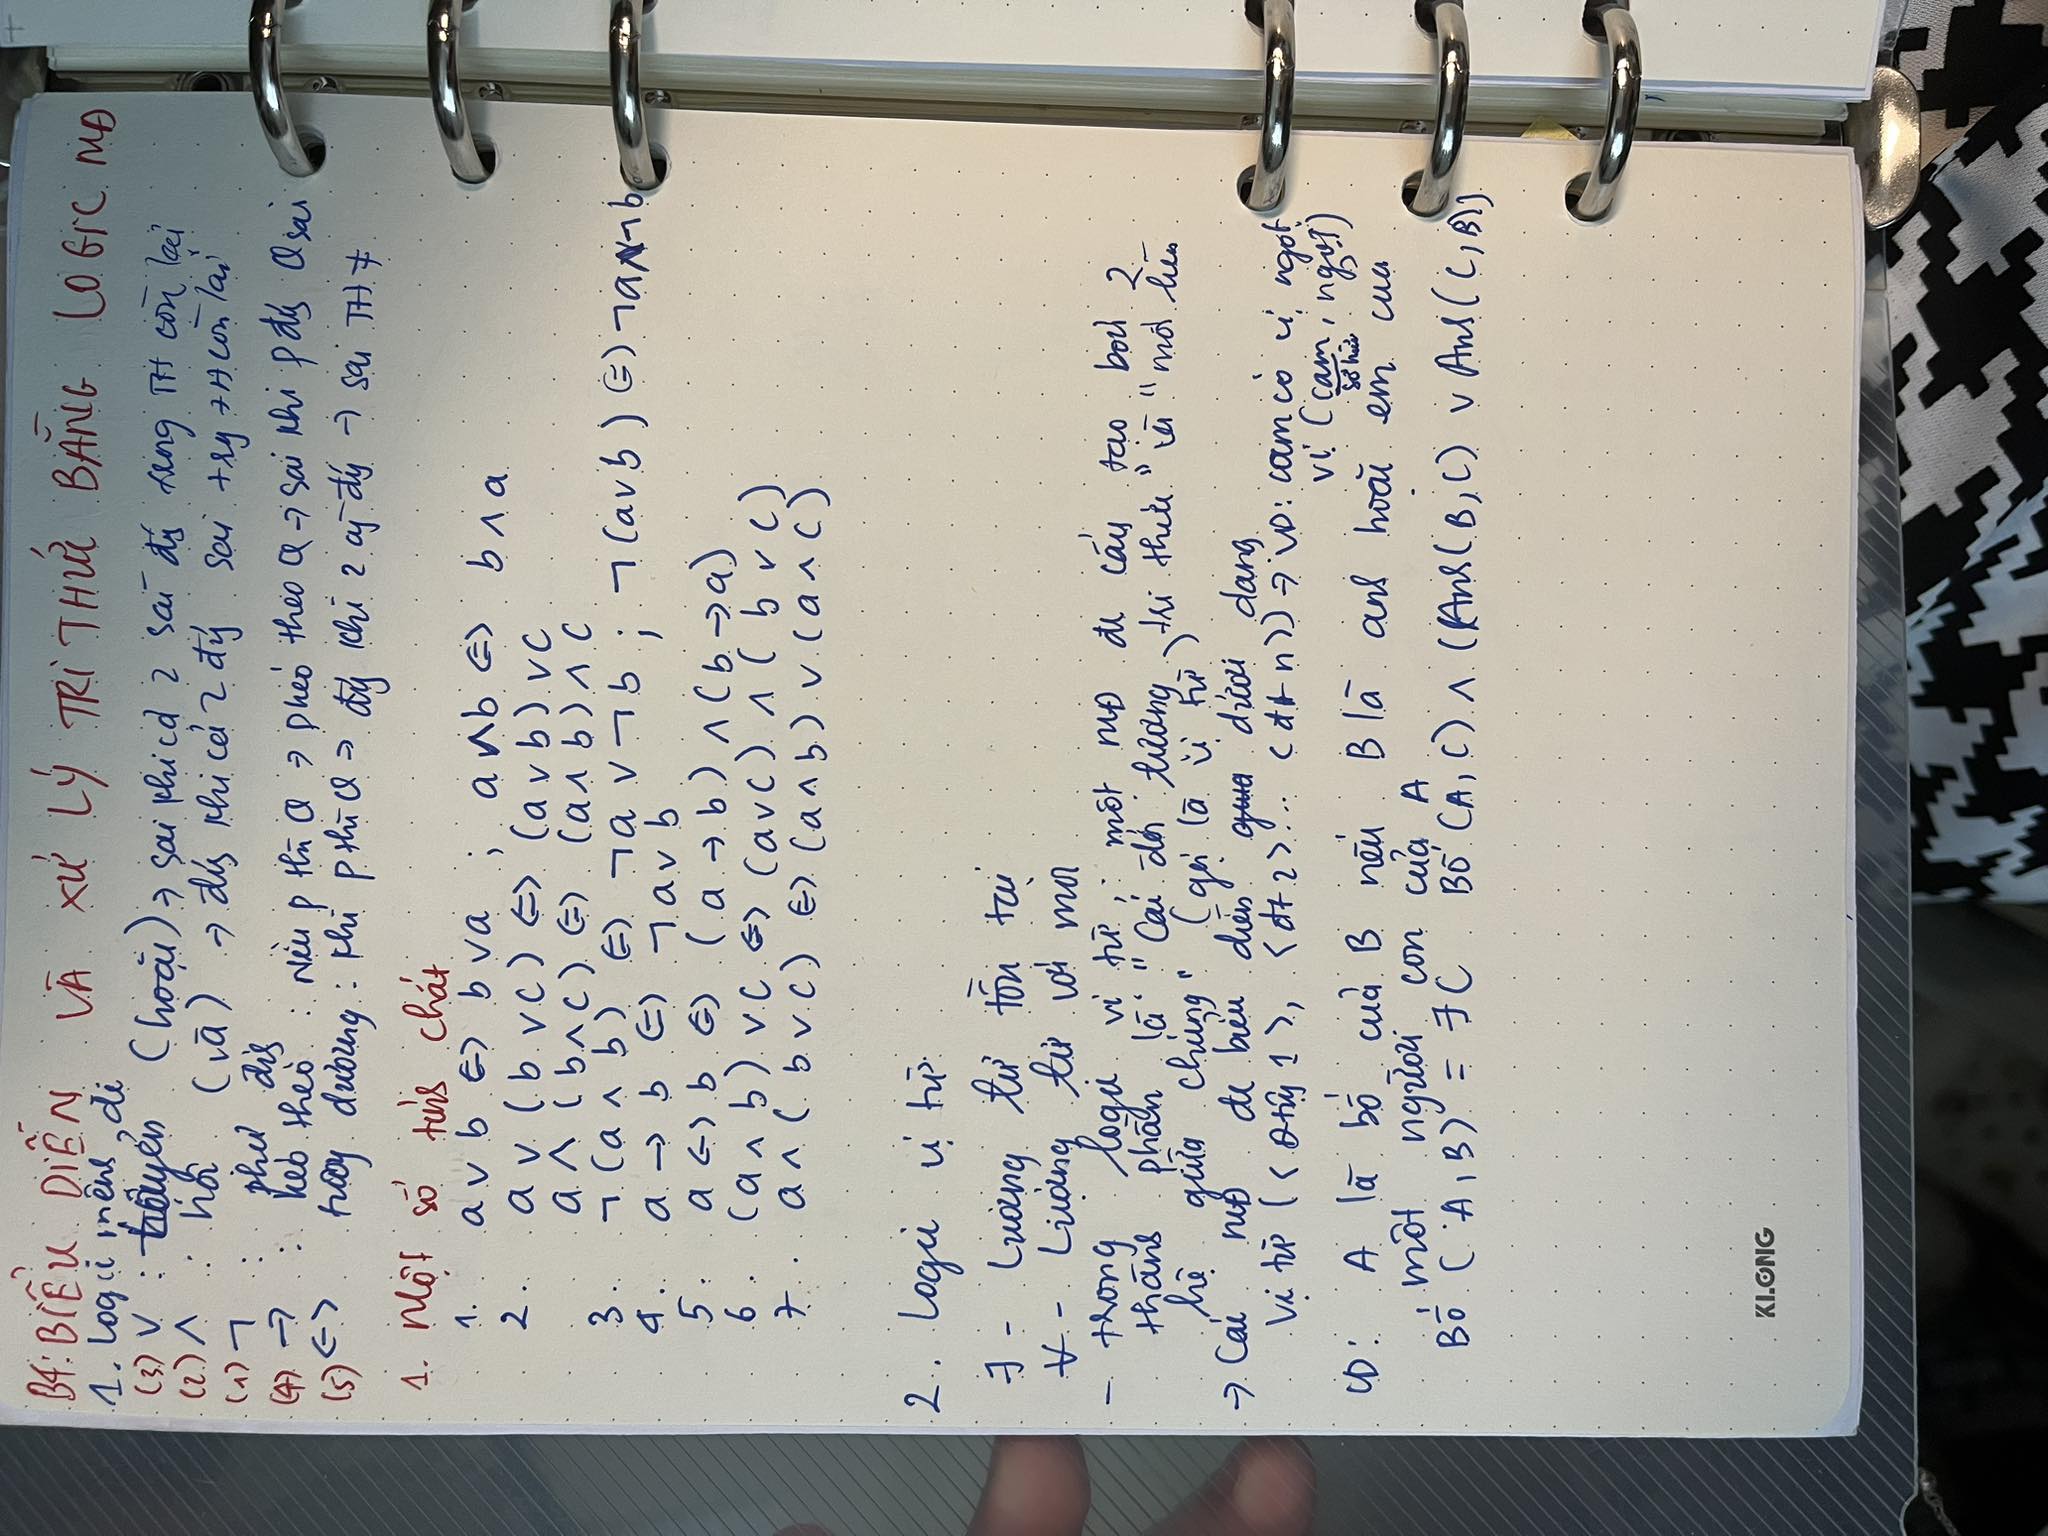 B4: BIỂU DIỄN VÀ XỬ LÝ TRI THỨC BẰNG LOGIC MĐ
1. Logic mệnh đề
(3) ∨ : tuyển (hoặc) → sai khi cả 2 sai đg trong TH còn lại
(2) ∧ : hội (và) → đg khi cả 2 đg sai trg TH còn lại
(1) ¬ : phủ định
(4) → : kéo theo : Nếu P thì Q → P kéo theo Q → sai khi P đg Q sai
(5) <-> tương đương : khi P thì Q → đg khi 2 cg đg → sai TH ≠
1. Một số tính chất
1. a ∨ b <=> b ∨ a ; a ∧ b <=> b ∧ a
2. a ∨ (b ∨ c) <=> (a ∨ b) ∨ c
a ∧ (b ∧ c) <=> (a ∧ b) ∧ c
3. ¬(a ∧ b) <=> ¬a ∨ ¬b ; ¬(a ∨ b) <=> ¬a ∧ ¬b
4. a → b <=> ¬a ∨ b
5. a <-> b <=> (a → b) ∧ (b → a)
6. (a ∧ b) ∨ c <=> (a ∨ c) ∧ (b ∨ c)
7. a ∧ (b ∨ c) <=> (a ∧ b) ∨ (a ∧ c)
2. Logic vị từ
∃ - Lượng tử tồn tại
∀ - Lượng tử với mọi
- trong logic vị từ, : một MĐ đc cấu tạo bởi 2
thành phần là "Các đối tượng tri thức" và "mối liên
hệ giữa chúng" (gọi là vị từ)
→ Các MĐ đc biểu diễn dưới dạng
Vị từ (<đtg 1>, <đt 2> ... <đt n>) → VD: cam có vị ngọt
vị (cam, ngọt)
sở hữu
VD: A là bố của B nếu B là anh hoặc em của
một người con của A
Bố (A, B) = ∃C Bố (A, C) ∧ ((Anh(B, C) ∨ Anh(C, B))
KLONG